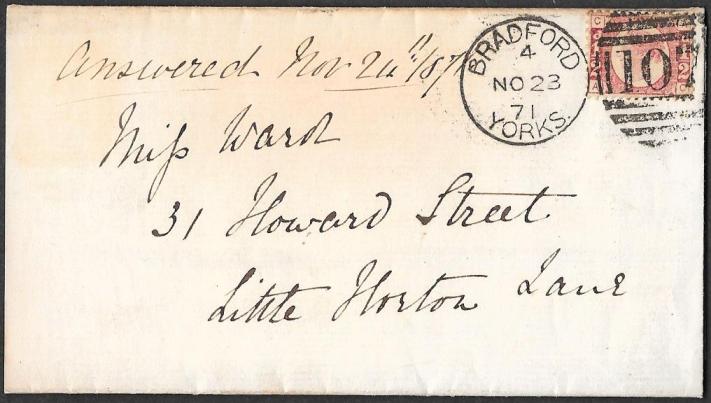 Answered Nov 24"/87
BRADFORD
4
NO 23
71
YORKS.
107
Miss Ward
31 Howard Street
Little Horton Lane